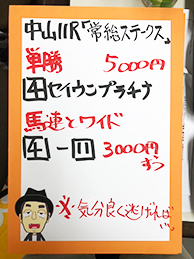 中山11R「常総ステークス」
単勝 5000円
4 セイウンプラチナ
馬連とワイド
4 ー 11 3000円
ずつ
※気分良く逃げれば